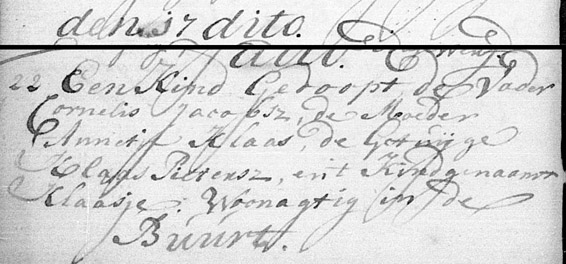 den 17 dito.
22 Een Kind Gedoopt, de Vader
Cornelis Jacobsz, de Moeder
Annetje Klaas, de Getuijge
Klaas Pietersz, en't Kind genaamt
Klaasje. Woonagtig in de
Buurt.